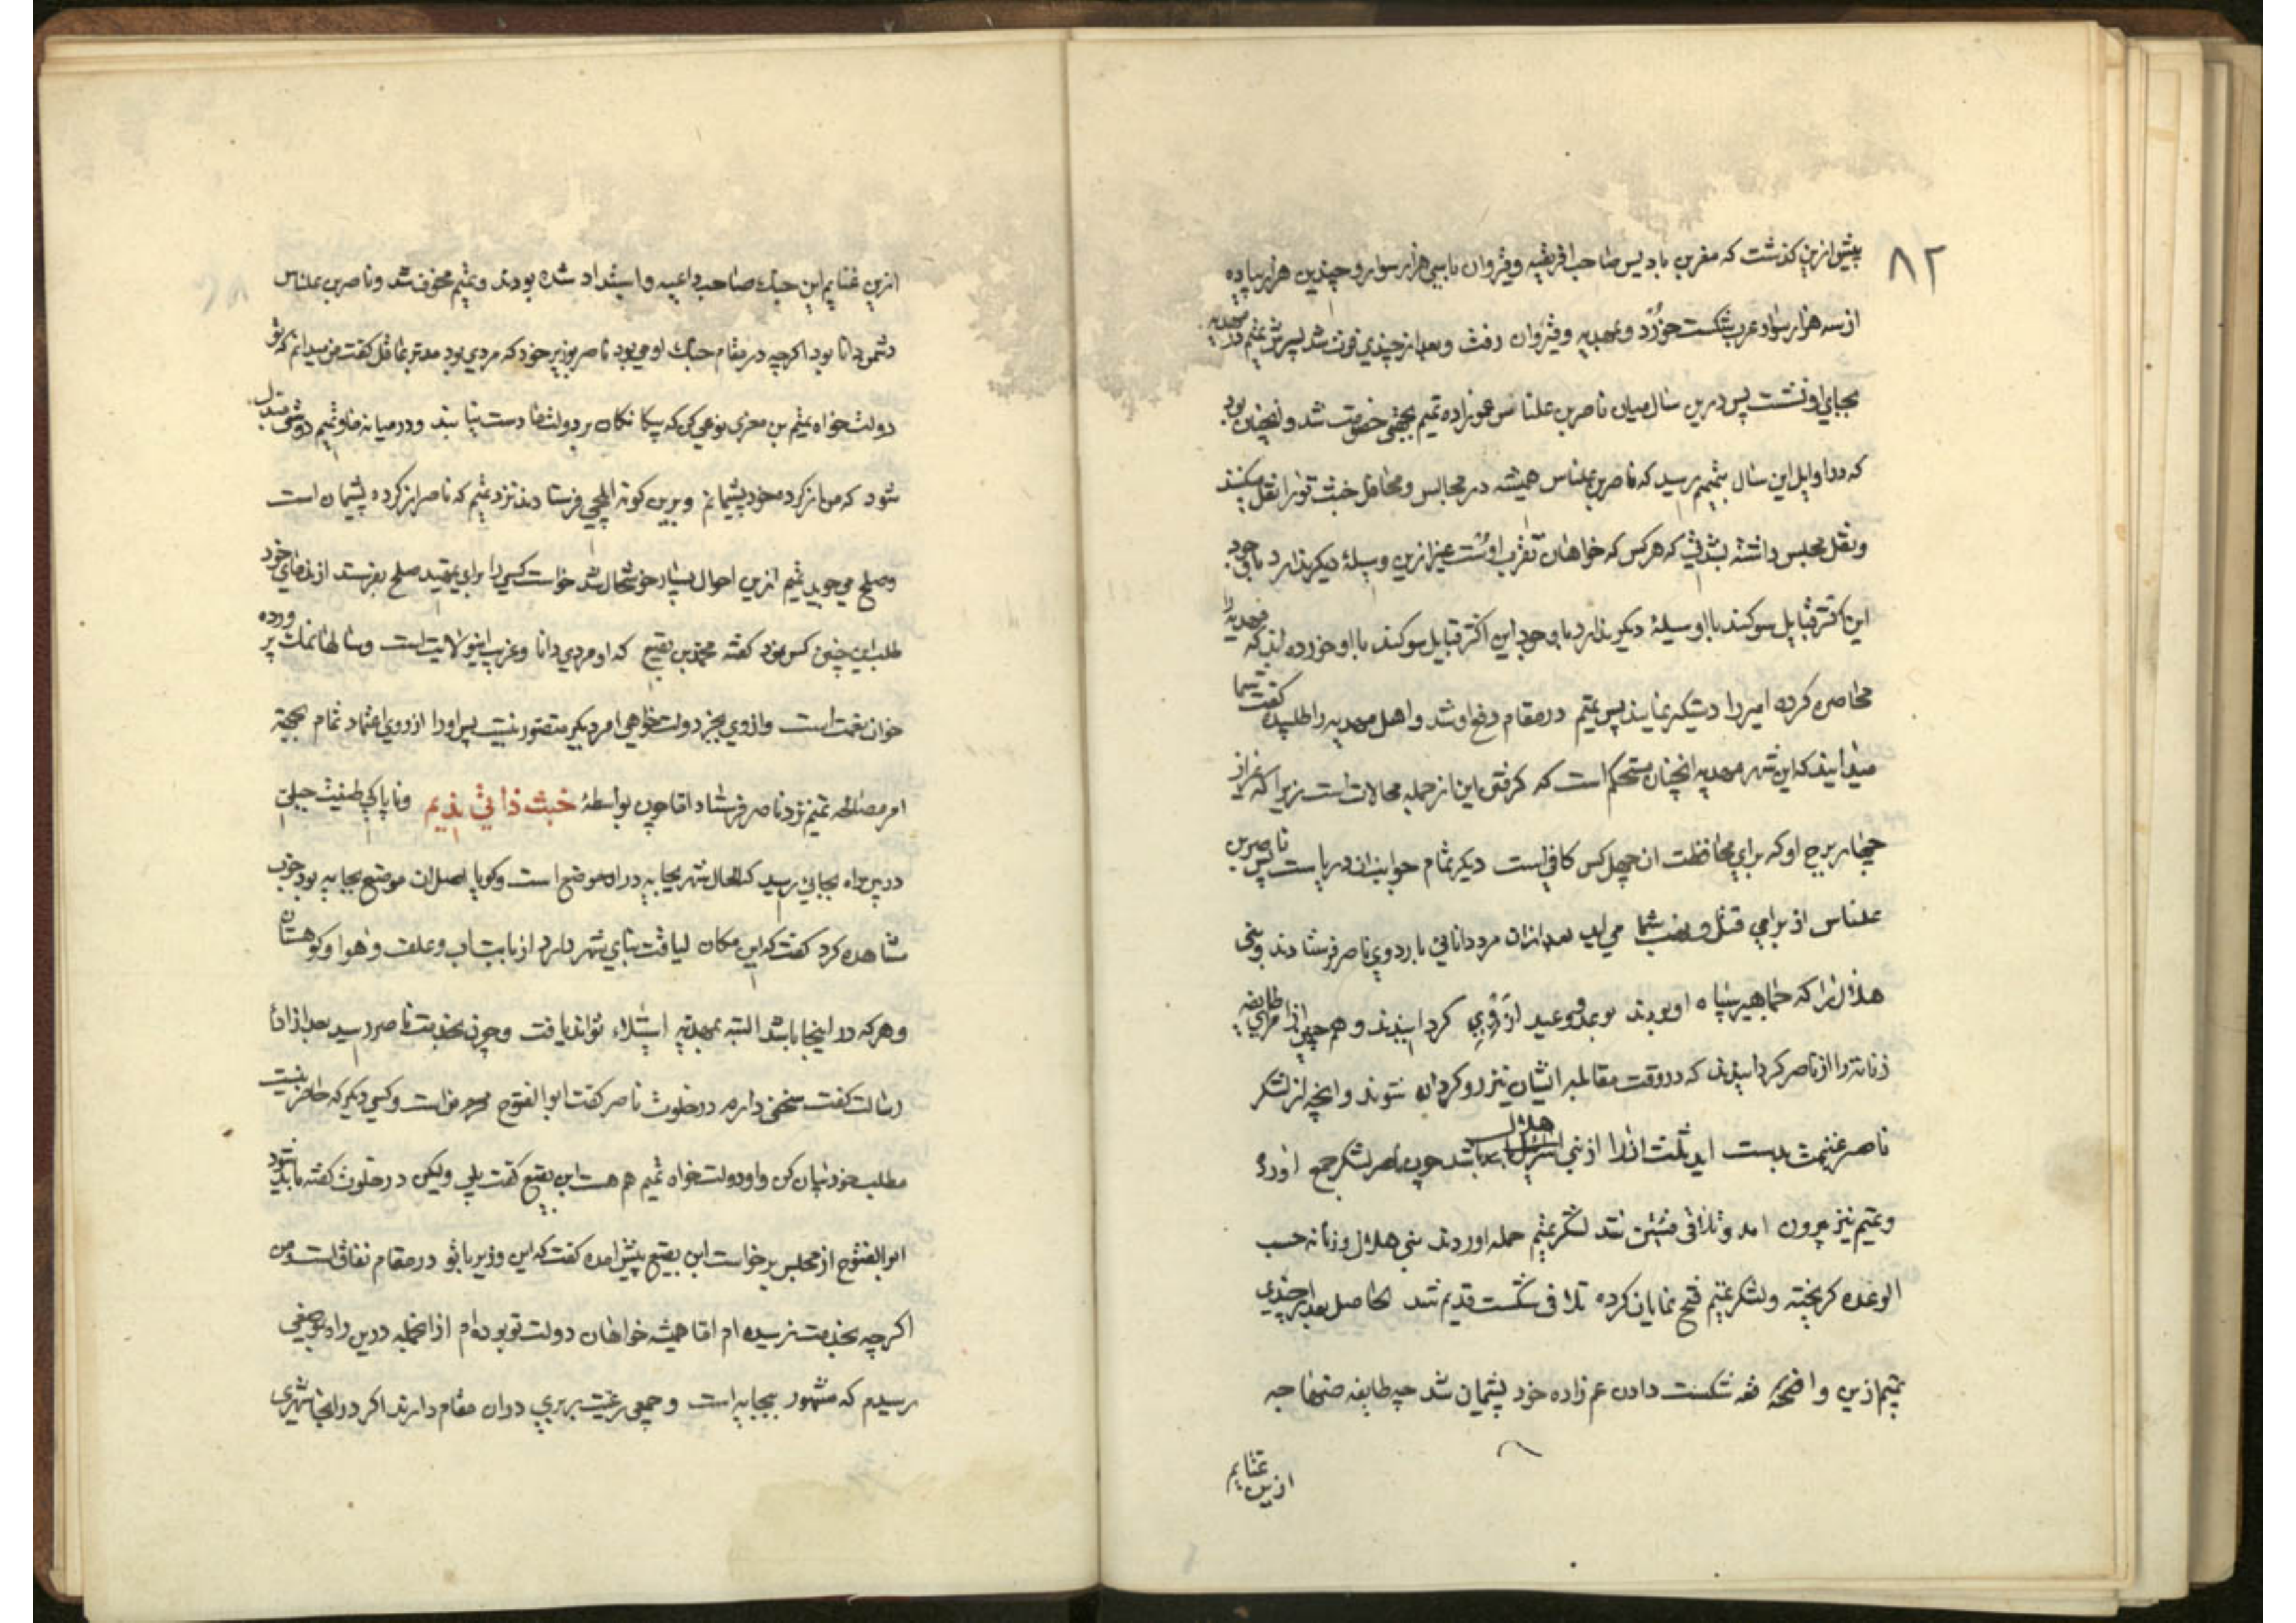 ۸۲
پیش ازین کذشت که معزبن بادیس صاحب افریقیه وقیروان باسی هزار سوار وچندین هزار پیاده
از سه هزار سوار عرب شکست خورد و بمهدیه وقیروان رفت وبعد از چندی فوت شد پسرش تمیم در مهدیه
بجای او نشست پس درین سال میان ناصر بن علناس عمو زاده تمیم خصومت شد وانچنان بود
که در اوایل این سال بتمیم رسید که ناصر بن علناس همیشه در مجالس ومحافل خبث تورا نقل میکند
ونقل مجلس داشته که هرکس که خواهان تقرب اوست غیر ازین وسیلهٔ دیکر ندارد با وجود
این اکثر قبایل سوکند با او وسیلهٔ دیکر ندارد با وجود این اکثر قبایل سوکند با او خورده اند که مهدیه را
محاصره کرده امیر را دستکیر نمایند پس تمیم در مقام دفع او شد واهل مهدیه را طلبیده کفت شما
میدانید که این شهر مهدیه انچنان مستحکم است که کرفتن این از جمله محالات است زیرا که غیر از
چهار برج او که برای محافظت ان چهل کس کافی است دیکر تمام جوانب ان دریاست پس ناصر بن
علناس از برای قتل و نهب شما می اید بعد ازان مرد دانایی باردوی ناصر فرستادند وبنی
هلال را که جماهیر سپاه او بودند بوعد و وعید از وی کردانیدند وهم چنین امرای طایفه
زناته را از ناصر کردانیدند که در وقت مقابله ایشان نیز رو کردان شوند وانچه از لشکر
ناصر غنیمت بدست اید ثلث ازرا از بنی هلال باشد چون ناصر لشکر جمع اورده
وتمیم نیز بیرون امد وتلاقی فئتین شد لشکر تمیم حمله اوردند بنی هلال وزناته حسب
الوعده کریخته ولشکر تمیم فتح نمایان کرده تلافی شکست قدیم شد الحاصل بعد از چندی
تمیم ازین واقعه شکست دادن عم زاده خود پشیمان شد چه طایفه صنهاجه
ازین غنایم
ازین غنایم این جنک صاحب داعیه واستعداد شده بودند وتمیم مخوف شد وناصر بن علناس
دشمن دانا بود اکرچه در مقام جنک او می بود ناصر بوزیر خود که مردی بود مدبر وعاقل کفت من میدانم که تو
دولتخواه تمیم بن معزی نوعی کن که بیکانکان بر دولت ما دست نیابند ودر میانه ما وتمیم دوستی مبدل
شود که من از کرده خود پشیمانم وبرین کونه ایلچی فرستادند نزد تمیم که ناصر از کرده پشیمان است
وصلح می جوید تمیم ازین احوال بسیار خوشحال شد خواست کسی را برای تمهید صلح بفرستد از ندمای خود
طلب این چنین کس نمود کفته محمد بن بقیع که او مردی دانا وغریب این ولایت است وسالها نمک پرورده
خوان نعمت است وازوی بجز دولتخواهی امر دیکر متصور نیست پس اورا از روی اعتماد تمام بجهة
امر مصالحه تمیم نزد ناصر فرستاد اما چون بواسطهٔ خبث ذاتی ندیم وناپاکی طینت جبلی
درین راه بجایی رسید که الحال شهر بجایه دران موضع است وکویا اصل ان موضع بجایه بود خوب
مشاهده کرد کفت که این مکان لیاقت بنای شهر دارد از بابت اب وعلف وهوا وکوهستان
وهرکه در اینجا باشد البته بمهدیه استیلاء تواند یافت وچون بخدمت ناصر رسید بعد از اداء
رسالت کفت سخنی دارم در خلوت ناصر کفت ابو الفتوح محرم منست وکسی دیکر که حاضر نیست
مطلب خود بیان کن واو دولتخواه تمیم هم هست ابن بقیع کفت بلی ولیکن در خلوت کفته باید شود
ابو الفتوح از مجلس برخواست ابن بقیع پیش امده کفت که این وزیر با تو در مقام نفاق است ومن
اکرچه بخدمت نرسیده ام اما همیشه خواهان دولت تو بوده ام از انجمله درین راه بموضعی
رسیدم که مشهور ببجایه است وجمعی رعیت بربری دران مقام دارند اکر در انجا شهری